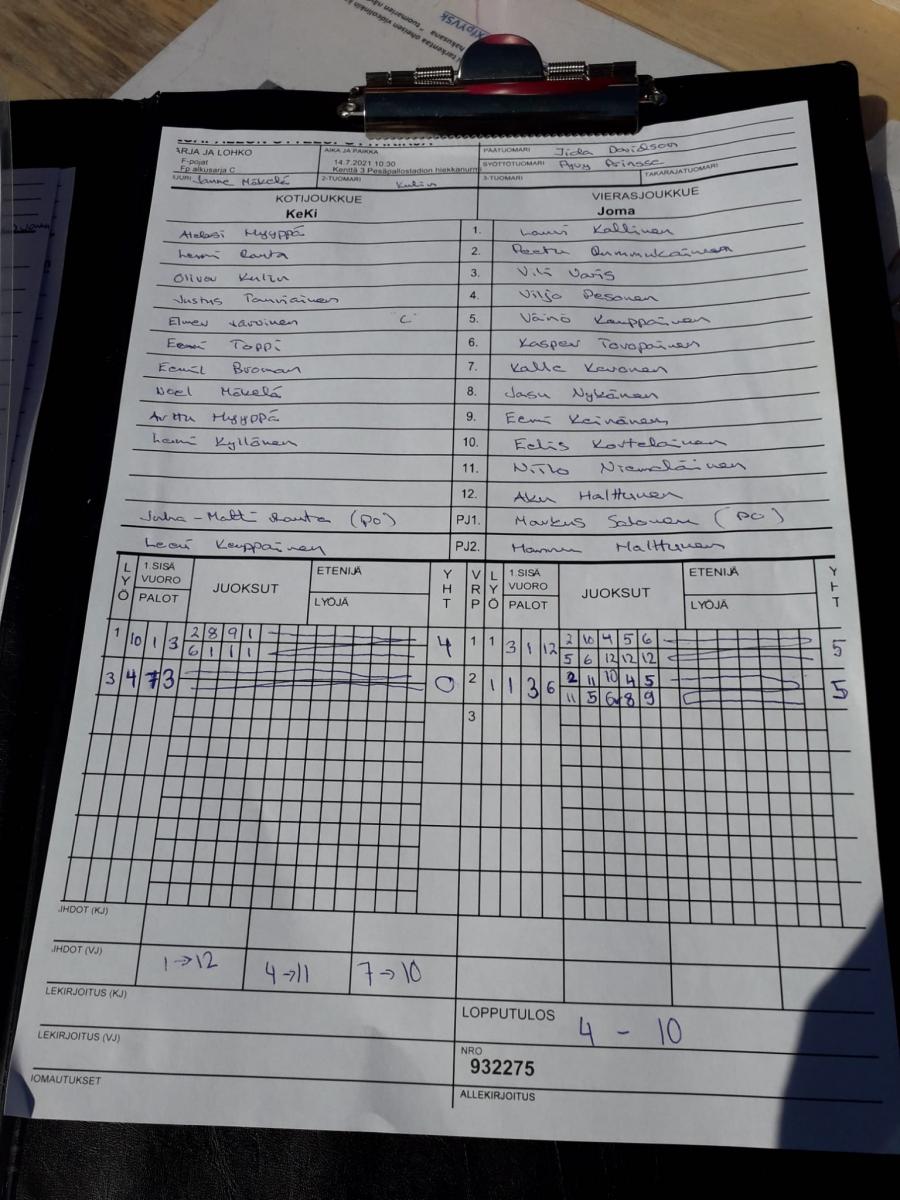 ARJA JA LOHKO
F-pojat
Fp alkusarja C
AIKA JA PAIKKA
14.7.2021 10:30
Kenttä 3 Pesäpallostadion hiekkanurm
PÄÄTUOMARI
SYÖTTÖTUOMARI
UURI Janne Mäkelä 2-TUOMARI Kulin 3-TUOMARI TAKARAJATUOMARI
KOTIJOUKKUE VIERASJOUKKUE
KeKi Joma
Hyyppä 1. Lauri Kallinen
Lenni Ranta 2. Peetu
Oliver Kulin 3. Vili Varis
Justus 4. Viljo Pesonen
Elmer Järvinen C 5. Väinö Kauppainen
Eemi Toppi 6. Kasper
Eemil Broman 7. Kalle
Noel Mäkelä 8. Nykänen
Arttu Hyyppä 9. Eemi Keinänen
Lenni Kyllönen 10. Eelis Kortelainen
11. Niilo Niemeläinen
12. Aku Halttunen
Juha-Matti Ranta (PO) PJ1. Markus Salonen (PO)
Kauppainen PJ2. Hannu Halttunen
LYÖ 1.SISÄ VUORO PALOT JUOKSUT ETENIJÄ LYÖJÄ YHT VRP LYÖ 1.SISÄ VUORO PALOT JUOKSUT ETENIJÄ LYÖJÄ YHT
1 10 1 3 2 8 9 1 4 1 1 3 1 12 2 10 4 5 6 5
6 1 1 1 5 6 12 12 12
3 4 7 3 0 2 1 1 3 6 2 11 10 4 5 5
11 5 6 8 9
3
IHDOT (KJ)
IHDOT (VJ) 1→12 4→11 7→10
LEKIRJOITUS (KJ)
LOPPUTULOS 4 - 10
LEKIRJOITUS (VJ)
NRO
932275
IOMAUTUKSET
ALLEKIRJOITUS